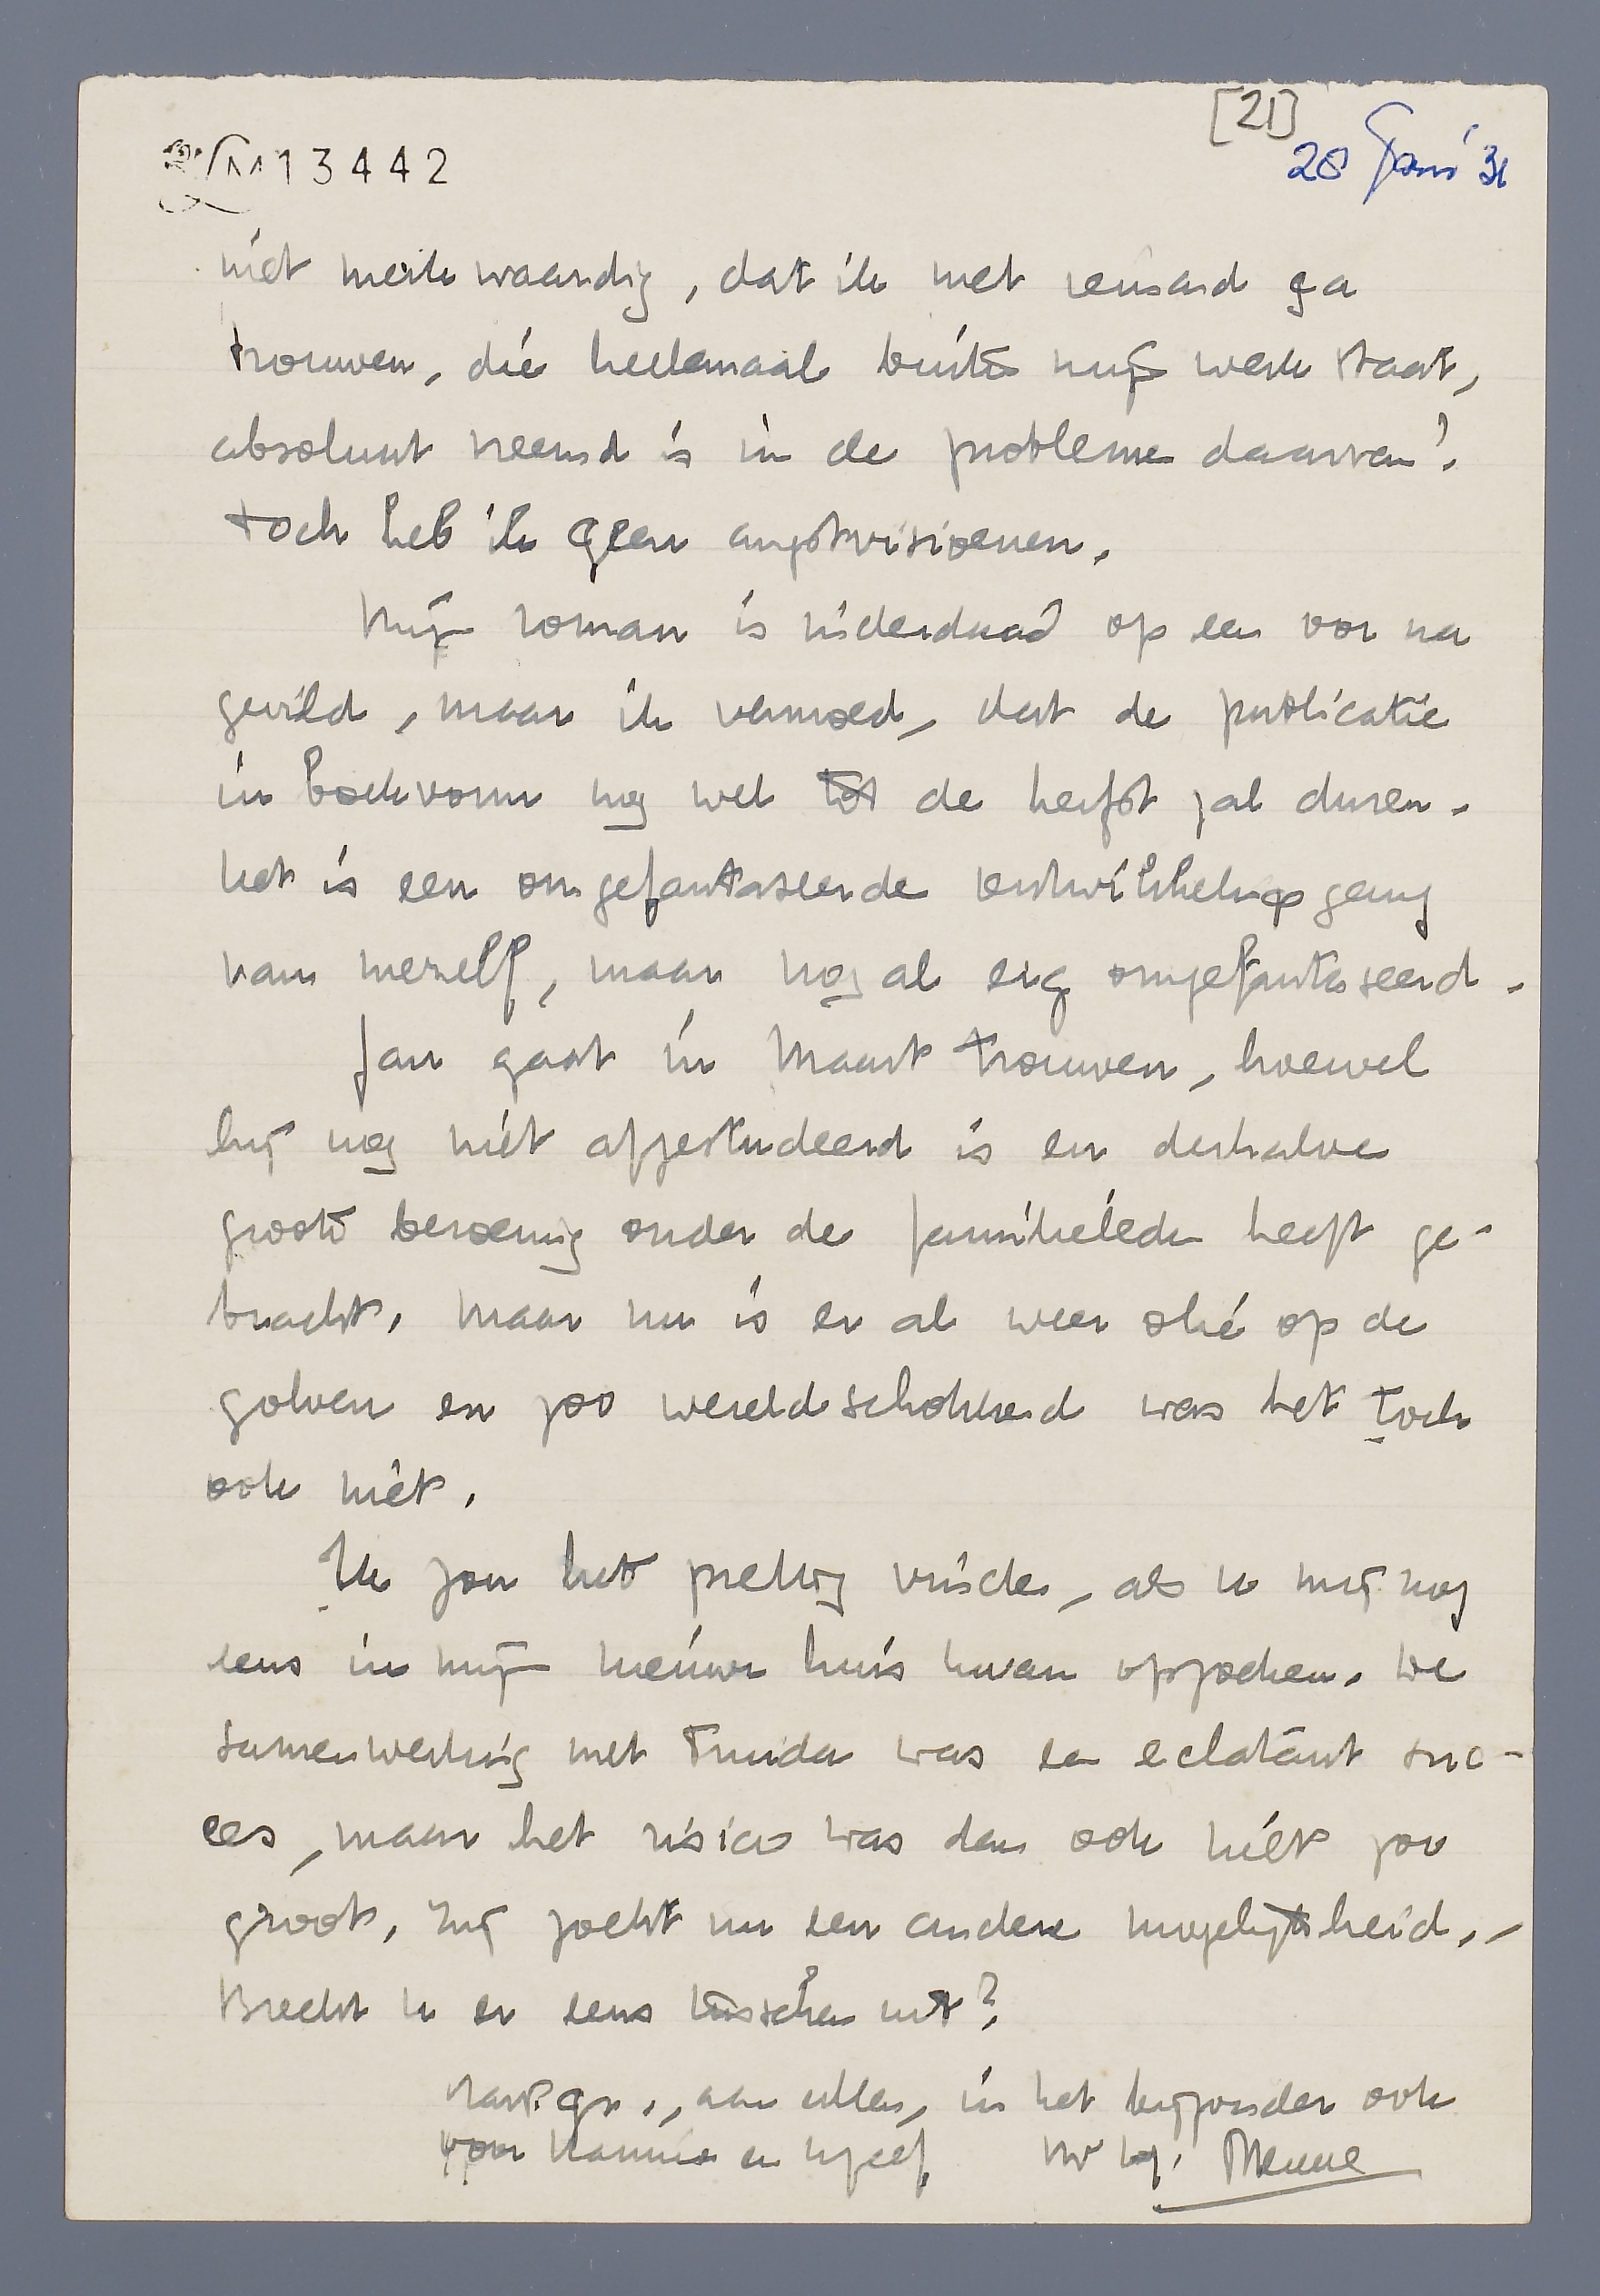 [21]
M 13442
28 Jan '31
niet merkwaardig, dat ik met iemand ga
trouwen, die heelemaal buiten mijn werk staat,
absoluut vreemd is in de problemen daarvan!
toch heb ik geen angstvisioenen.
Mijn roman is inderdaad op een oor na
gevild, maar ik vermoed, dat de publicatie
in boekvorm nog wel tot de herfst zal duren.
het is een omgefantaseerde ontwikkelingsgang
van mezelf, maar nog al erg omgefantaseerd.
Jan gaat in Maart trouwen, hoewel
hij nog niet afgestudeerd is en derhalve
groote beroering onder de familieleden heeft ge-
bracht. Maar nu is er al weer olie op de
golven en zoo wereldschokkend was het toch
ook niet.
Ik zou het prettig vinden, als u mij nog
eens in mijn nieuwe huis kwam opzoeken. De
samenwerking met Truida was een eclatant suc-
ces, maar het risico was dan ook niet zoo
groot. Zij zoekt nu een andere mogelijkheid.
Breekt u er eens tusschen uit?
Hart. gr., aan allen, in het bijzonder ook
voor Hannie en uzelf, Menno